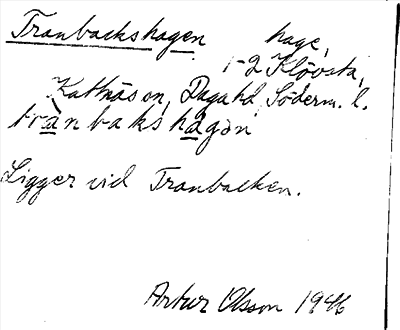 Tranbackshagen hage,
1-2 Klövsta,
Kattnäs sn, Daga hd, Söderm. l.
tranbakshagən
Ligger vid Tranbacken.
Artur Olsson 1946